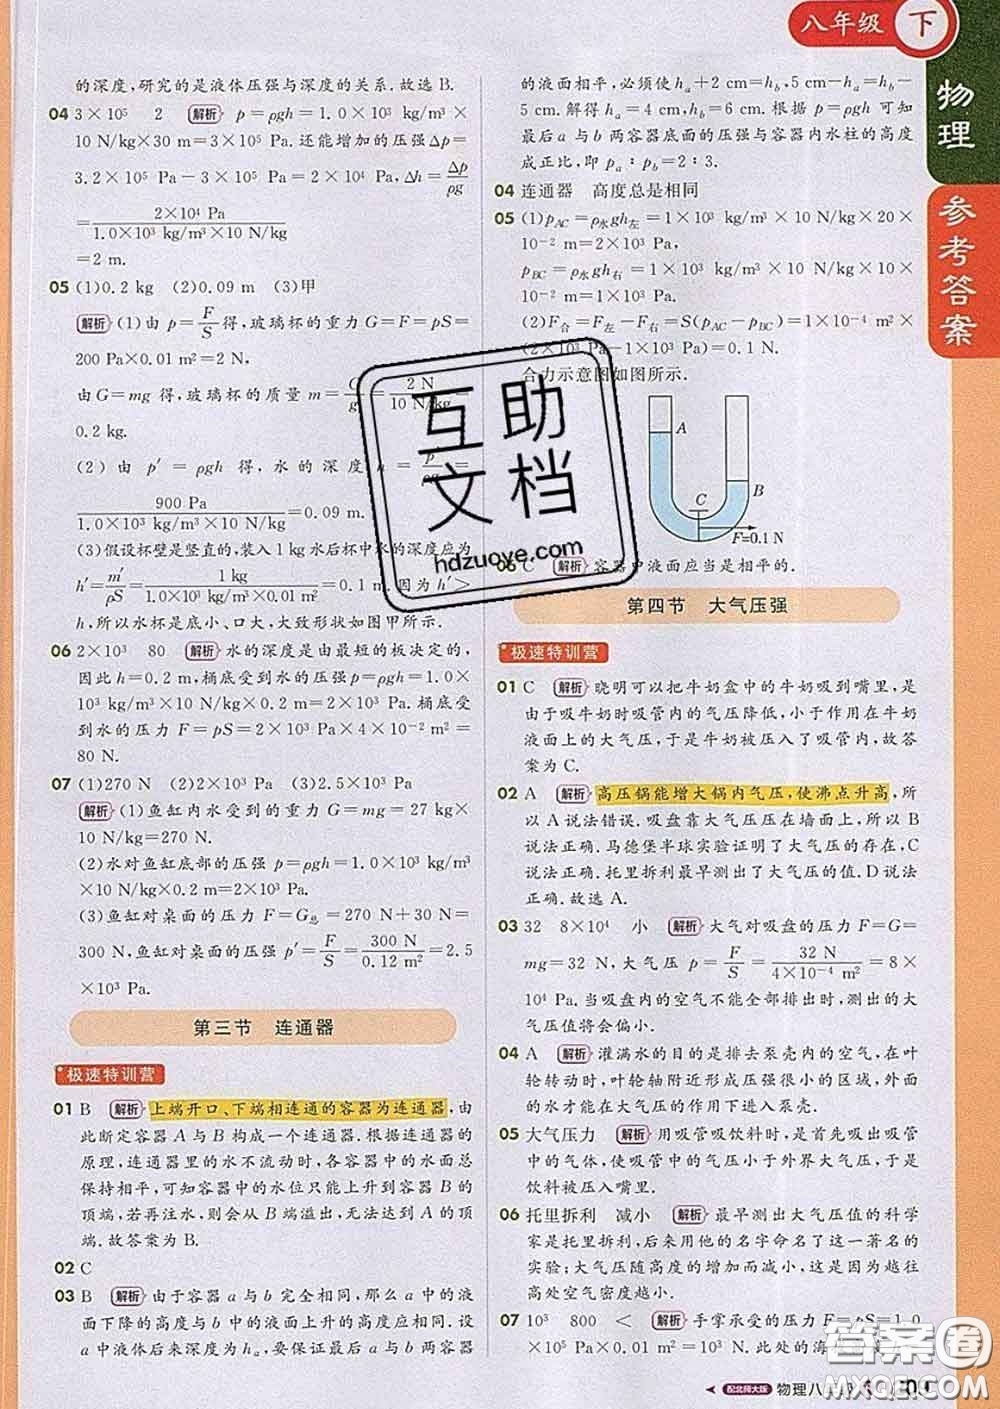 八年级 下
物理
参考答案
的深度,研究的是液体压强与深度的关系.故选 B.
04 3×10⁵ 2 解析 p=ρgh=1.0×10³ kg/m³×
10 N/kg×30 m=3×10⁵ Pa.还能增加的压强Δp=
3.2×10⁵ Pa-3×10⁵ Pa=2×10⁴ Pa,Δh=Δp/ρg
=2×10⁴ Pa/1.0×10³ kg/m³×10 N/kg
=2 m.
05 (1)0.2 kg (2)0.09 m (3)甲
解析 (1)由 p=F/S得,玻璃杯的重力 G=F=pS=
200 Pa×0.01 m²=2 N,
由 G=mg 得,玻璃杯的质量 m=G/g=2 N/10 N/kg
0.2 kg.
(2)由 p′=ρgh 得,水的深度 h=p′/ρg=
900 Pa/1.0×10³ kg/m³×10 N/kg=0.09 m.
(3)假设杯壁是竖直的,装入 1 kg 水后杯中水的深度应为
h′=m′/ρS=1 kg/1.0×10³ kg/m³×0.01 m²=0.1 m.因为 h′>
h,所以水杯是底小、口大,大致形状如图甲所示.
06 2×10³ 80 解析 水的深度是由最短的板决定的,
因此 h=0.2 m,桶底受到的压强 p=ρgh=1.0×
10³ kg/m³×10 N/kg×0.2 m=2×10³ Pa.桶底受
到水的压力 F=pS=2×10³ Pa×4×10⁻² m²=
80 N.
07 (1)270 N (2)2×10³ Pa (3)2.5×10³ Pa
解析 (1)鱼缸内水受到的重力 G=mg=27 kg×
10 N/kg=270 N.
(2)水对鱼缸底部的压强 p=ρgh=1.0×10³ kg/m³
×10 N/kg×0.2 m=2×10³ Pa.
(3)鱼缸对桌面的压力 F=G总=270 N+30 N=
300 N,鱼缸对桌面的压强 p′=F/S=300 N/0.12 m²=2.5
×10³ Pa.
第三节 连通器
极速特训营
01 B 解析 上端开口、下端相连通的容器为连通器,由
此断定容器 A 与 B 构成一个连通器.根据连通器的
原理,连通器里的水不流动时,各容器中的水面总
保持相平,可知容器中的水位只能上升到容器 B 的
顶端,若再注水,则会从 B 端溢出,无法达到 A 的顶
端.故答案为 B.
02 C
03 B 解析 由于容器 a 与 b 完全相同,那么 a 中的液
面下降的高度与 b 中的液面上升的高度应相同.设
a 中液体后来深度为 hₐ,要保证最后 a 与 b 两容器
的液面相平,必须使 hₐ+2 cm=h_b,5 cm-hₐ=h_b-
5 cm.解得 hₐ=4 cm,h_b=6 cm.根据 p=ρgh 可知
最后 a 与 b 两容器底面的压强与容器内水柱的高度
成正比,即 pₐ∶p_b=2∶3.
04 连通器 高度总是相同
05 (1)p_AC=ρ水gh左=1×10³ kg/m³×10 N/kg×20×
10⁻² m=2×10³ Pa,
p_BC=ρ水gh右=1×10³ kg/m³×10 N/kg×10×
10⁻² m=1×10³ Pa.
(2)F合=F左-F右=S(p_AC-p_BC)=1×10⁻⁴ m²×
(2×10³ Pa-1×10³ Pa)=0.1 N.
合力示意图如图所示.
A
B
C
F=0.1 N
06 C 解析 容器中液面应当是相平的.
第四节 大气压强
极速特训营
01 C 解析 晓明可以把牛奶盒中的牛奶吸到嘴里,是
由于吸牛奶时吸管内的气压降低,小于作用在牛奶
液面上的大气压,于是牛奶被压入了吸管内.故答
案为 C.
02 A 解析 高压锅能增大锅内气压,使沸点升高,所
以 A 说法错误.吸盘靠大气压压在墙面上,所以 B
说法正确.马德堡半球实验证明了大气压的存在,C
说法正确.托里拆利最早测出大气压的值.D 说法
正确.故选 A.
03 32 8×10⁴ 小 解析 大气对吸盘的压力 F=G=
mg=32 N,大气压 p=F/S=32 N/4×10⁻⁴ m²=8×
10⁴ Pa.当吸盘内的空气不能全部排出时,测出的大
气压值将会偏小.
04 A 解析 灌满水的目的是排去泵壳内的空气,在叶
轮转动时,叶轮附近形成压强很小的区域,外面
的水才能在大气压的作用下进入泵壳.
05 大气压力 解析 用吸管吸饮料时,是首先吸出吸管
中的气体,使吸管中的气压小于外界大气压,于是
饮料被压入嘴里.
06 托里拆利 减小 解析 最早测出大气压值的科学
家是托里拆利,后来用他的名字命名了这一著名的
实验;大气压随高度的增加而减小,这是因为越往
高处空气密度越小.
07 10³ 800 < 解析 手掌承受的压力 F=pS=1.0
×10⁵ Pa×100×10⁻⁴ m²=10³ N.此处的海
配北师大版 物理八年级
互助文档
hdzuoye.com
答案圈
MXQE.COM